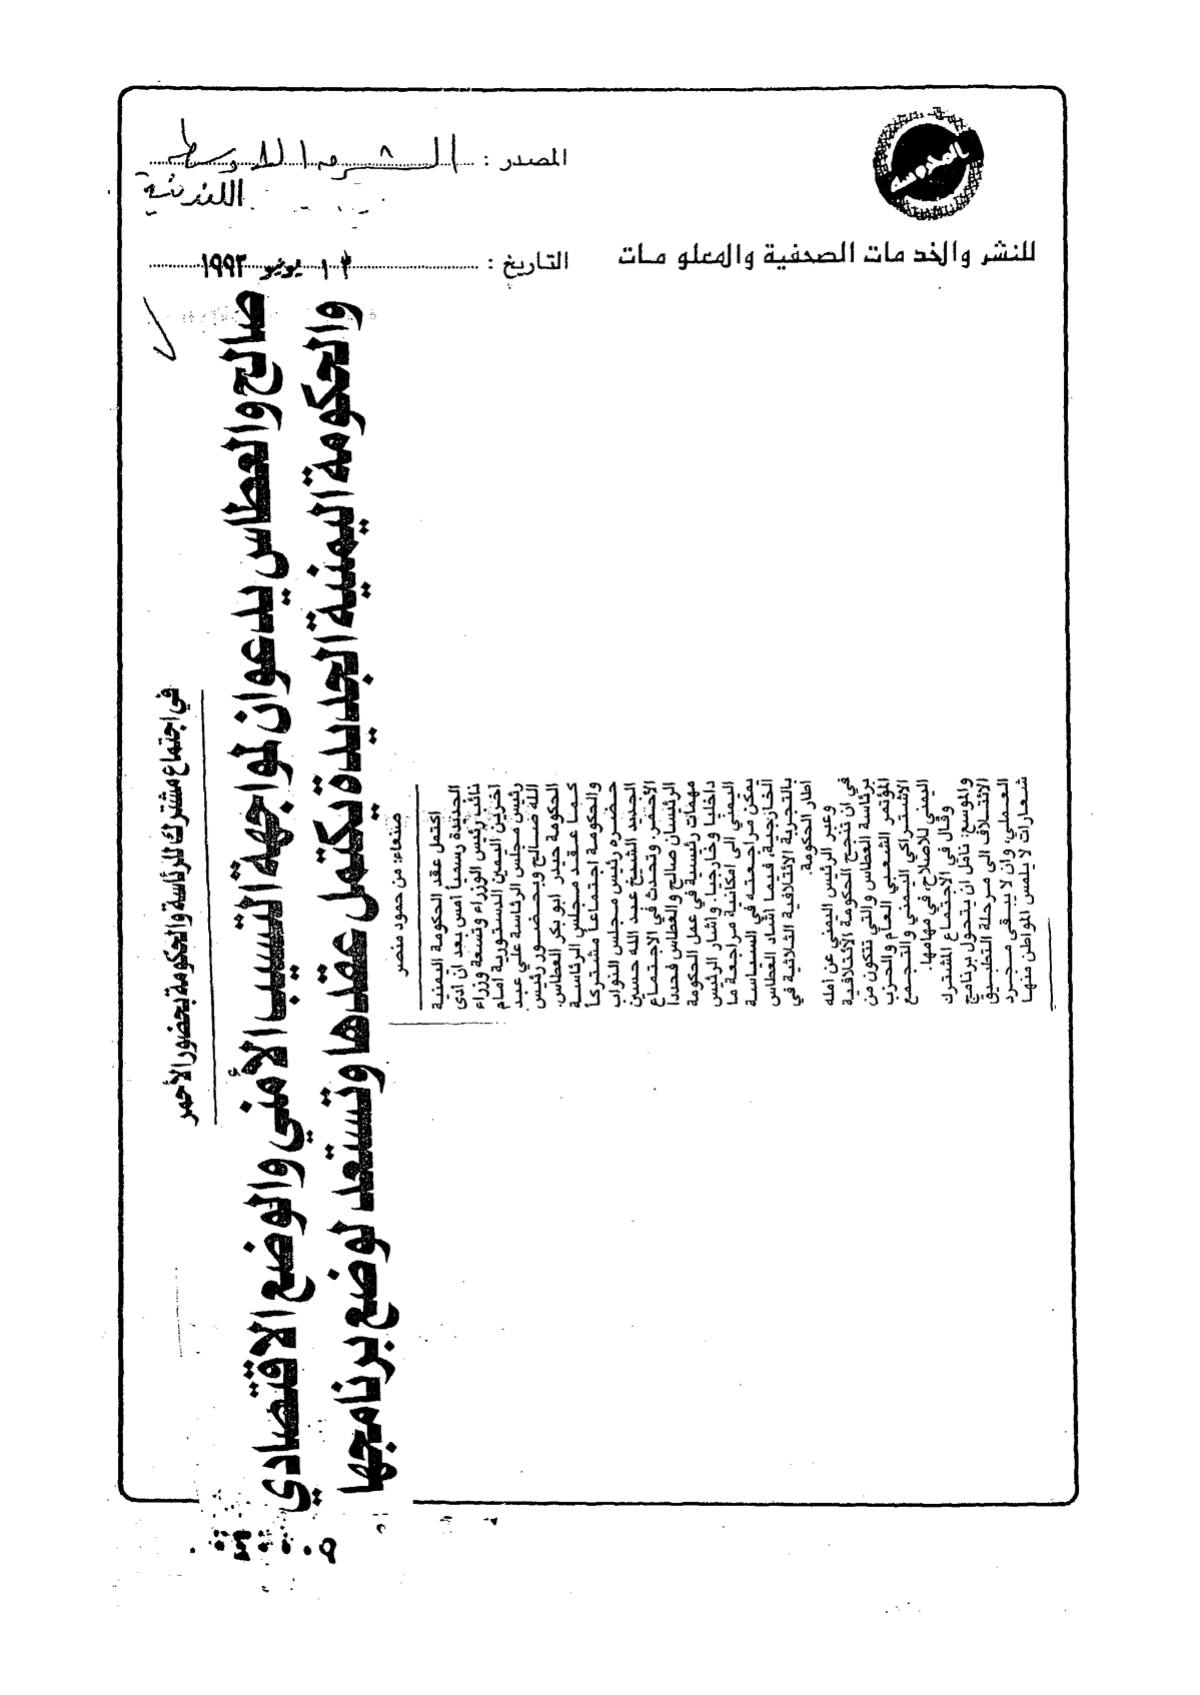 المصدر : الشرق الأوسط
اللندنية
المحروسة
للنشر والخدمات الصحفية والمعلومات
التاريخ : ١٣ يونيو ١٩٩٣
في اجتماع مشترك للرئاسة والحكومة بحضور الأحمر
صالح والعطاس يدعوان لمواجهة التسيب الأمني والوضع الاقتصادي
والحكومة اليمنية الجديدة يكتمل عقدها وتستعد لوضع برنامجها
صنعاء: من حمود منصر
اكتمل عقد الحكومة اليمنية
الجديدة رسمياً امس بعد ان ادى
نائب رئيس الوزراء وتسعة وزراء
آخرين اليمين الدستورية امام
رئيس مجلس الرئاسة علي عبد
الله صالح وبحضور رئيس
الحكومة حيدر ابو بكر العطاس.
كما عقد مجلس الرئاسة
والحكومة اجتماعاً مشتركاً
حضره رئيس مجلس النواب
الجديد الشيخ عبد الله حسين
الأحمر. وتحدث في الاجتماع
الرئيسان صالح والعطاس فحددا
مهمات رئيسية في عمل الحكومة
داخليا وخارجيا. واشار الرئيس
اليمني الى امكانية مراجعة ما
يمكن مراجعته في السياسة
الخارجية، فيما اشاد العطاس
بالتجربة الائتلافية الثلاثية في
اطار الحكومة.
وعبر الرئيس اليمني عن أمله
في ان تنجح الحكومة الائتلافية
برئاسة العطاس والتي تتكون من
المؤتمر الشعبي العام والحزب
الاشتراكي اليمني والتجمع
اليمني للاصلاح، في مهامها.
وقال في الاجتماع المشترك
والموسع: نأمل ان يتحول برنامج
الائتلاف الى مرحلة التطبيق
العملي، وان لا يبقى مجرد
شعارات لا يلمس المواطن منها